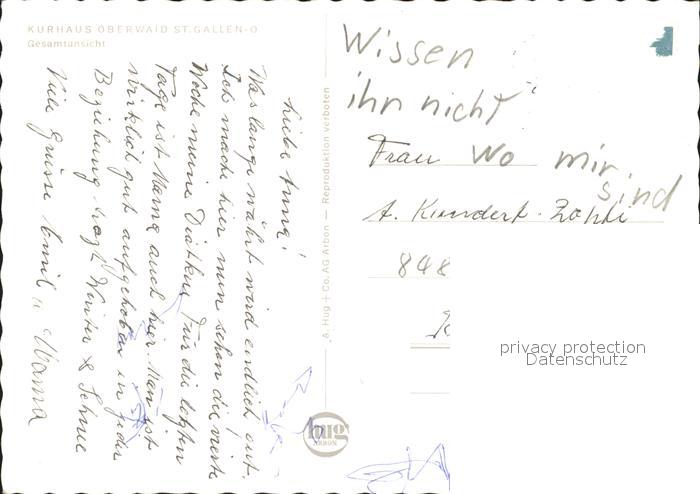 KURHAUS OBERWAID ST.GALLEN-O
Gesamtansicht
Liebe Anna!
Was lange währt wird endlich gut.
Ich mache hier nun schon die vierte
Woche meine Diätkur. Für die letzten
Tage ist Mama auch hier. Man ist
wirklich gut aufgehoben in jeder
Beziehung. trotz Winter & Schnee
Viele Grüsse Emil u Mama
A. Hug + Co. AG Arbon — Reproduktion verboten
hug
ARBON
Wissen
ihn nicht
wo mir
sind
Frau
A. Kundert-Zähli
848
privacy protection
Datenschutz